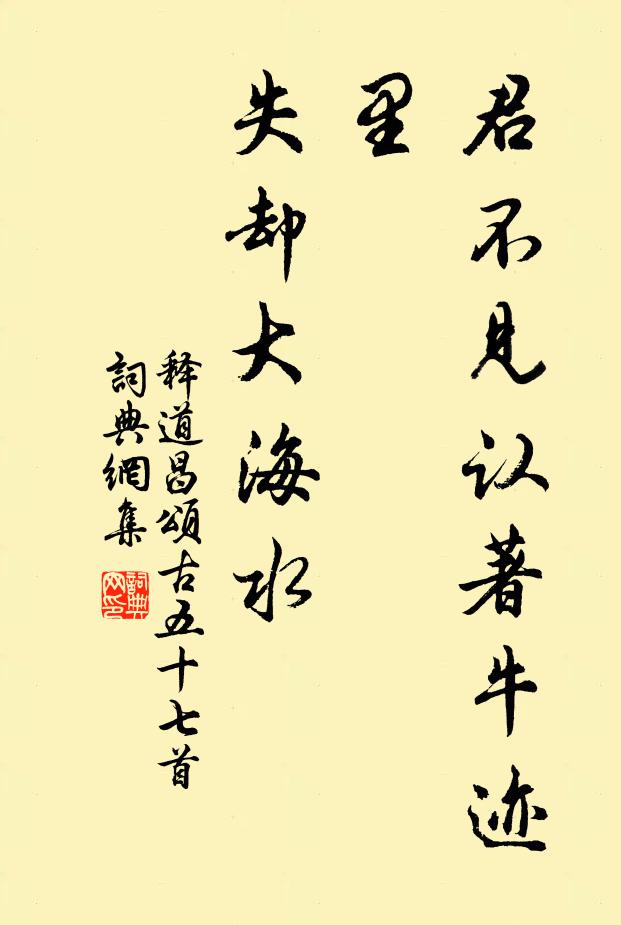 君不见认著牛迹
里
失却大海水
释道昌颂古五十七首
詞典網集
詞典网印